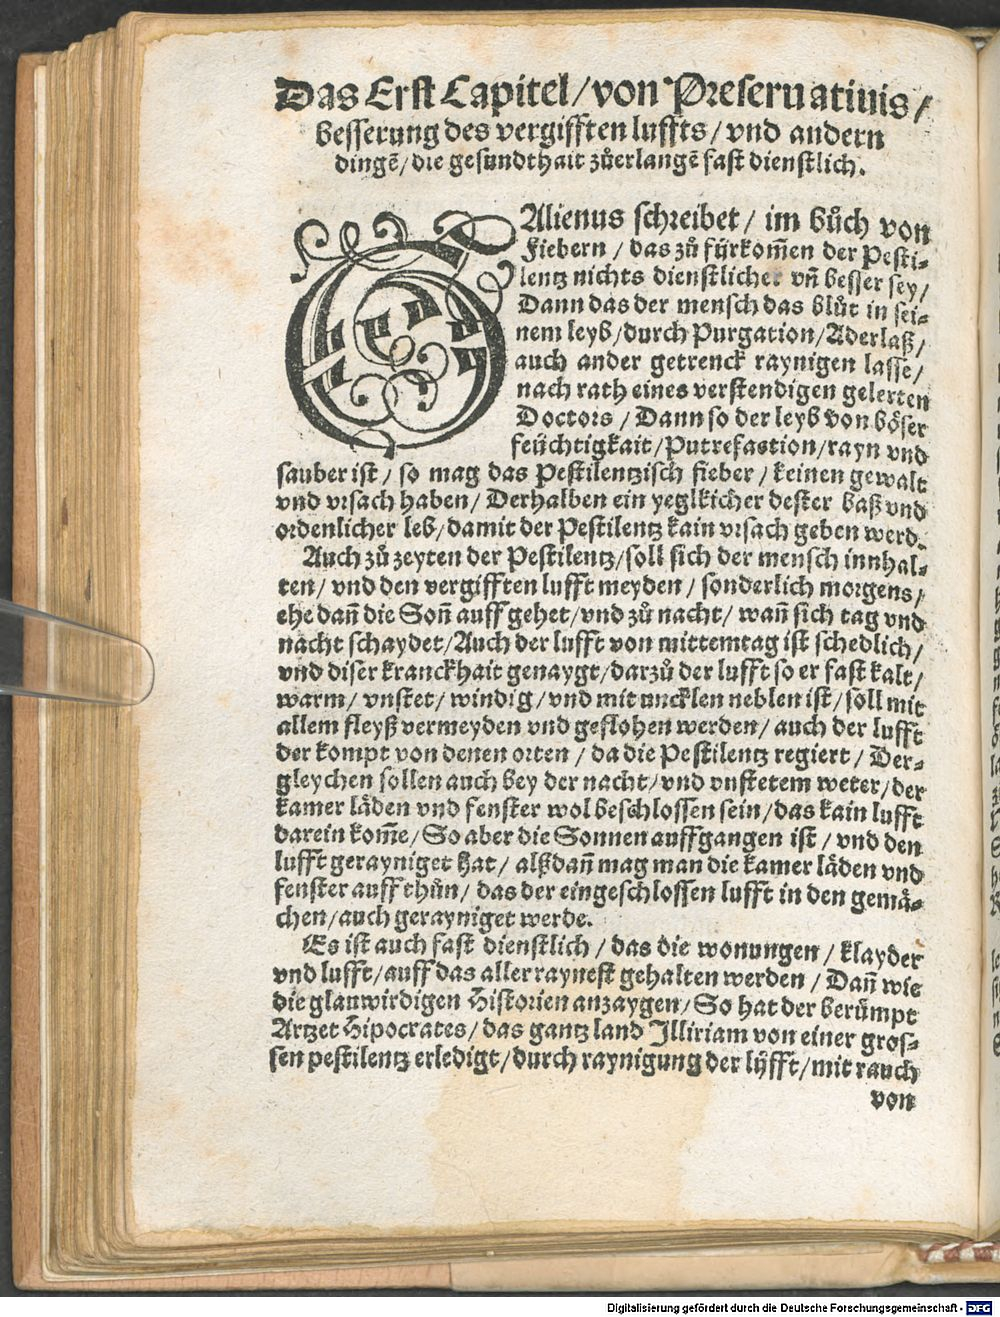 Das Erst Capitel/von Preseruatiuis/
besserung des vergifften luffts/ vnd andern
dingẽ/die gesundthait zůerlangẽ fast dienstlich.
GAlienus schreibet/ im bůch von
Fiebern/ das zů fürkom̃en der Pesti-
lentz nichts dienstlicher vñ besser sey/
Dann das der mensch das blůt in sei-
nem leyb/durch Purgation/Aderlaß/
auch ander getrenck raynigen lasse/
nach rath eines verstendigen gelerten
Doctors/ Dann so der leyb von böser
feüchtigkait/Putrefaction/rayn vnd
sauber ist/ so mag das Pestilentzisch fieber/ keinen gewalt
vnd vrsach haben/ Derhalben ein yeglkicher dester baß vnd
ordenlicher leb/damit der Pestilentz kain vrsach geben werd.
Auch zů zeyten der Pestilentz/soll sich der mensch innhal-
ten/ vnd den vergifften lufft meyden/ sonderlich morgens/
ehe dañ die Soñ auff gehet/vnd zů nacht/ wañ sich tag vnd
nacht schaydet/Auch der lufft von mittemtag ist schedlich/
vnd diser kranckhait genaygt/darzů der lufft so er fast kalt/
warm/ vnstet/ windig/vnd mit tuncklen neblen ist/soll mit
allem fleyß vermeyden vnd geflohen werden/ auch der lufft
der kompt von denen orten/ da die Pestilentz regiert/ Der-
gleychen sollen auch bey der nacht/vnd vnstetem weter/der
kamer läden vnd fenster wol beschlossen sein/das kain lufft
darein kom̃e/So aber die Sonnen auffgangen ist/ vnd den
lufft gerayniget hat/ alßdañ mag man die kamer läden vnd
fenster auff thůn/ das der eingeschlossen lufft in den gemä-
chen/auch gerayniget werde.
Es ist auch fast dienstlich/das die wonungen/ klayder
vnd lufft/auff das aller raynest gehalten werden/ Dañ wie
die glauwirdigen Historien anzaygen/So hat der berümpt
Artzet Hipocrates/ das gantz land Illiriam von einer gros-
sen pestilentz erledigt/durch raynigung der lüfft/mit rauch
von
Digitalisierung gefördert durch die Deutsche Forschungsgemeinschaft - DFG